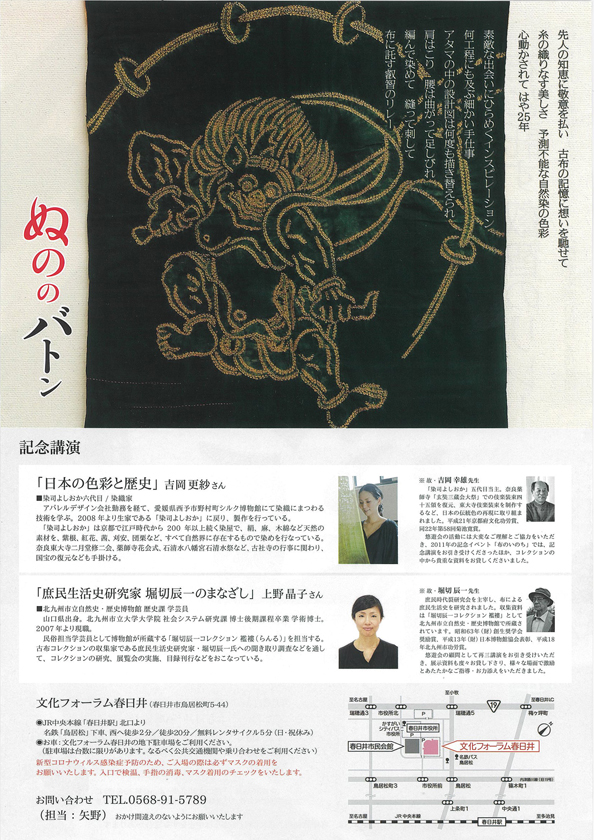 先人の知恵に敬意を払い 古布の記憶に想いを馳せて
糸の織りなす美しさ 予測不能な自然染の色彩
心動かされて はや25年
素敵な出会いにひらめくインスピレーション
何工程にも及ぶ細かい手仕事
アタマの中の設計図は何度も描き替えられ
肩はこり 腰は曲がって足しびれ
編んで染めて 縫って刺して
布に託す叡智のリレー
ぬのの
バトン
記念講演
「日本の色彩と歴史」吉岡 更紗さん
■染司よしおか六代目 / 染織家
アパレルデザイン会社勤務を経て、愛媛県西予市野村町シルク博物館にて染織にまつわる
技術を学ぶ。2008 年より生家である「染司よしおか」に戻り、製作を行っている。
「染司よしおか」は京都で江戸時代から 200 年以上続く染屋で、絹、麻、木綿など天然の
素材を、紫根、紅花、茜、刈安、団栗など、すべて自然界に存在するもので染めを行なっている。
奈良東大寺二月堂修二会、薬師寺花会式、石清水八幡宮石清水祭など、古社寺の行事に関わり、
国宝の復元なども手掛ける。
※ 故・吉岡 幸雄先生
「染司よしおか」五代目当主。奈良薬
師寺「玄奘三蔵会大祭」での伎楽装束四
十五領を復元、東大寺伎楽装束を制作す
るなど、日本の伝統色の再現に取り組ま
れました。平成21年京都府文化功労賞、
同22年第58回菊池寛賞。
悠遊会の活動には大変なご理解とご協力をいただ
き、2011年の記念イベント「布のいのち」では、記
念講演をお引き受けくださったほか、コレクションの
中から貴重な資料をお貸しくださいました。
「庶民生活史研究家 堀切辰一のまなざし」上野 晶子さん
■北九州市立自然史・歴史博物館 歴史課 学芸員
山口県出身。北九州市立大学大学院 社会システム研究課 博士後期課程卒業 学術博士。
2007 年より現職。
民俗担当学芸員として博物館が所蔵する「堀切辰一コレクション 襤褸(らんる)」を担当する。
古布コレクションの収集家である庶民生活史研究家・堀切辰一氏への聞き取り調査などを通し
て、コレクションの研究、展覧会の実施、目録刊行などをおこなっている。
※ 故・堀切 辰一先生
庶民時代裂研究会を主宰し、布による庶
民生活史を研究されました。収集資料
は「堀切辰一コレクション 襤褸」として
北九州市立自然史・歴史博物館に所蔵さ
れています。昭和63年(財)自生奨学会
奨励賞、平成13年(財)日本博物館協会表彰、平成18
年北九州市功労賞。
悠遊会の顧問として再三講演をお引き受けいただ
き、展示資料も度々お貸し下さり、様々な場面で激励
とあたたかなご指導・お力添えをいただきました。
文化フォーラム春日井(春日井市鳥居松町5-44)
◉JR中央本線「春日井駅」北口より
名鉄「鳥居松」下車、西へ徒歩2分／徒歩20分／無料レンタサイクル5分(日・祝休み)
◉お車:文化フォーラム春日井の地下駐車場をご利用ください。
(駐車場は台数に限りがあります。なるべく公共交通機関や乗り合わせをご利用ください。)
新型コロナウィルス感染症予防のため、ご入場の際は必ずマスクの着用を
お願いいたします。入口で検温、手指の消毒、マスク着用のチェックをいたします。
お問い合わせ TEL.0568-91-5789
(担当:矢野) おかけ間違えのないようにお願いいたします
至名古屋
至小牧
至春日井I.C
瑞穂通3
市役所北
瑞穂通5
19
梅ヶ坪町
P
かすがい
シティバス
市役所
春日井市役所
春日井市民会館
P
文化フォーラム春日井
名鉄バス
鳥居松
至名古屋
鳥居松町3
市役所前
鳥居松
篠木町1
上条町1
中央通1
至名古屋
JR中央本線
春日井駅
至多治見